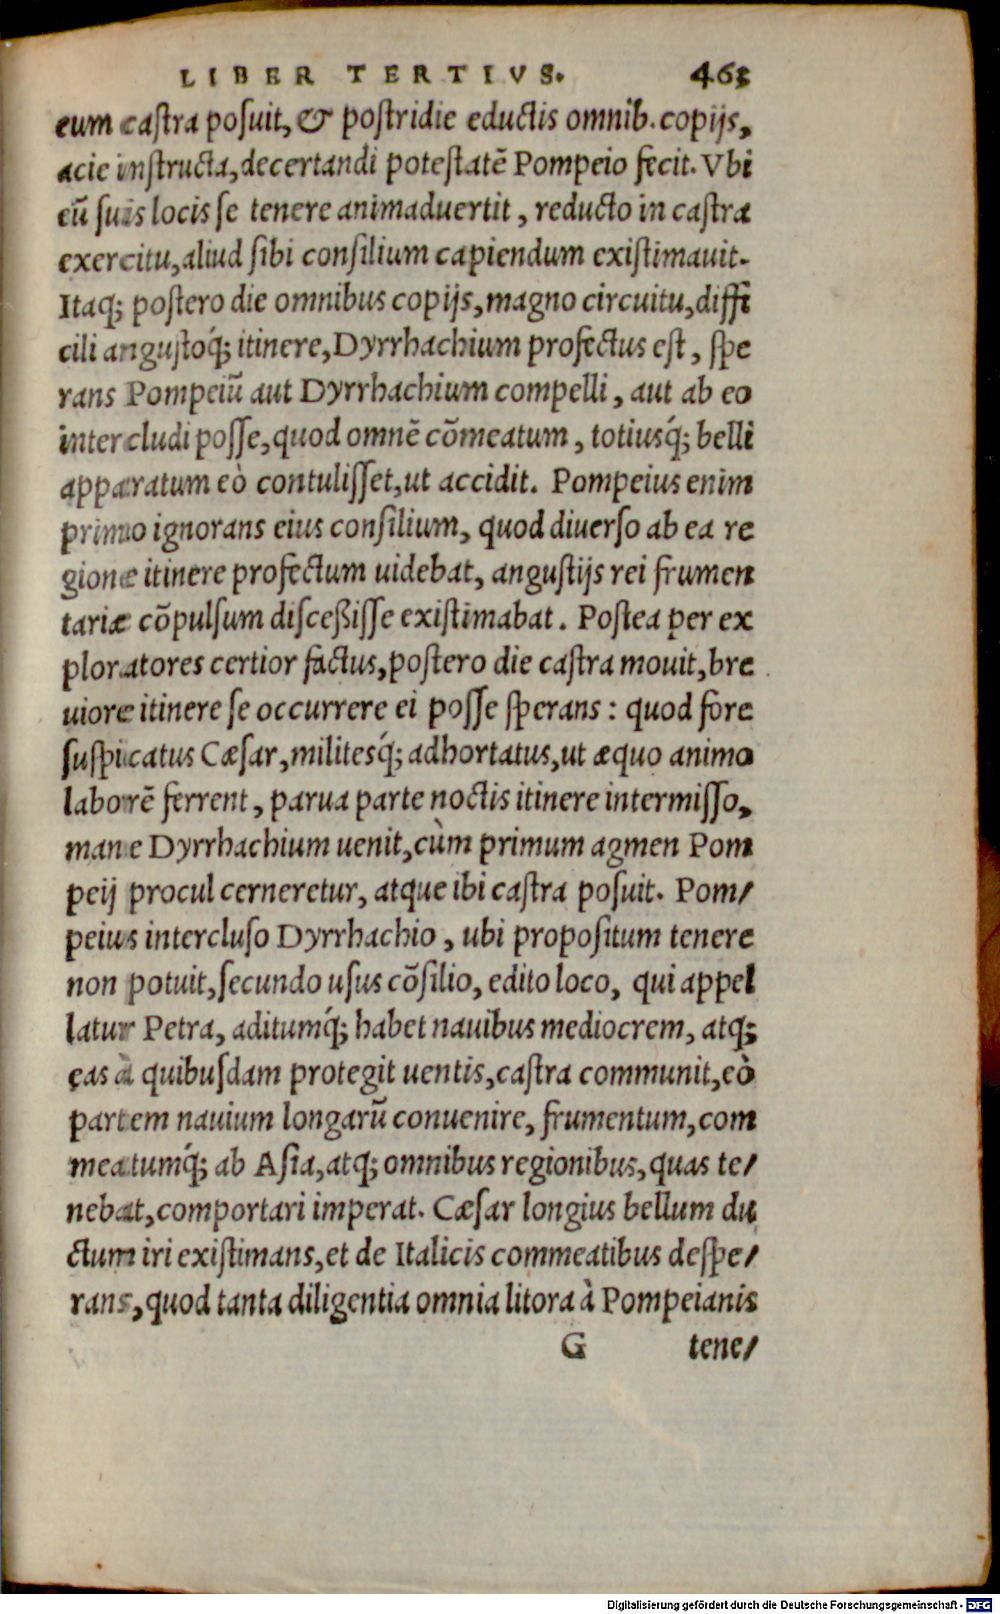 LIBER TERTIVS. 463
eum castra posuit, & postridie eductis omnib. copijs,
acie instructa, decertandi potestatē Pompeio fecit. Vbi
eū suis locis se tenere animaduertit, reducto in castra
exercitu, aliud sibi consilium capiendum existimauit.
Itaq; postero die omnibus copijs, magno circuitu, diffi
cili angustoq́; itinere, Dyrrhachium profectus est, spe
rans Pompeiū aut Dyrrhachium compelli, aut ab eo
intercludi posse, quod omnē cōmeatum, totiusq́; belli
apparatum eò contulisset, ut accidit. Pompeius enim
primo ignorans eius consilium, quod diuerso ab ea re
gione itinere profectum uidebat, angustijs rei frumen
tariæ cōpulsum disceßisse existimabat. Postea per ex
ploratores certior factus, postero die castra mouit, bre
uiore itinere se occurrere ei posse sperans: quod fore
suspicatus Cæsar, militesq́; adhortatus, ut æquo animo
laborē ferrent, parua parte noctis itinere intermisso,
mane Dyrrhachium uenit, cùm primum agmen Pom
peij procul cerneretur, atque ibi castra posuit. Pom/
peius intercluso Dyrrhachio, ubi propositum tenere
non potuit, secundo usus cōsilio, edito loco, qui appel
latur Petra, aditumq́; habet nauibus mediocrem, atq;
eas à quibusdam protegit uentis, castra communit, eò
partem nauium longarū conuenire, frumentum, com
meatumq́; ab Asia, atq; omnibus regionibus, quas te/
nebat, comportari imperat. Cæsar longius bellum du
ctum iri existimans, et de Italicis commeatibus despe/
rans, quod tanta diligentia omnia litora à Pompeianis
G tene/
Digitalisierung gefördert durch die Deutsche Forschungsgemeinschaft - DFG